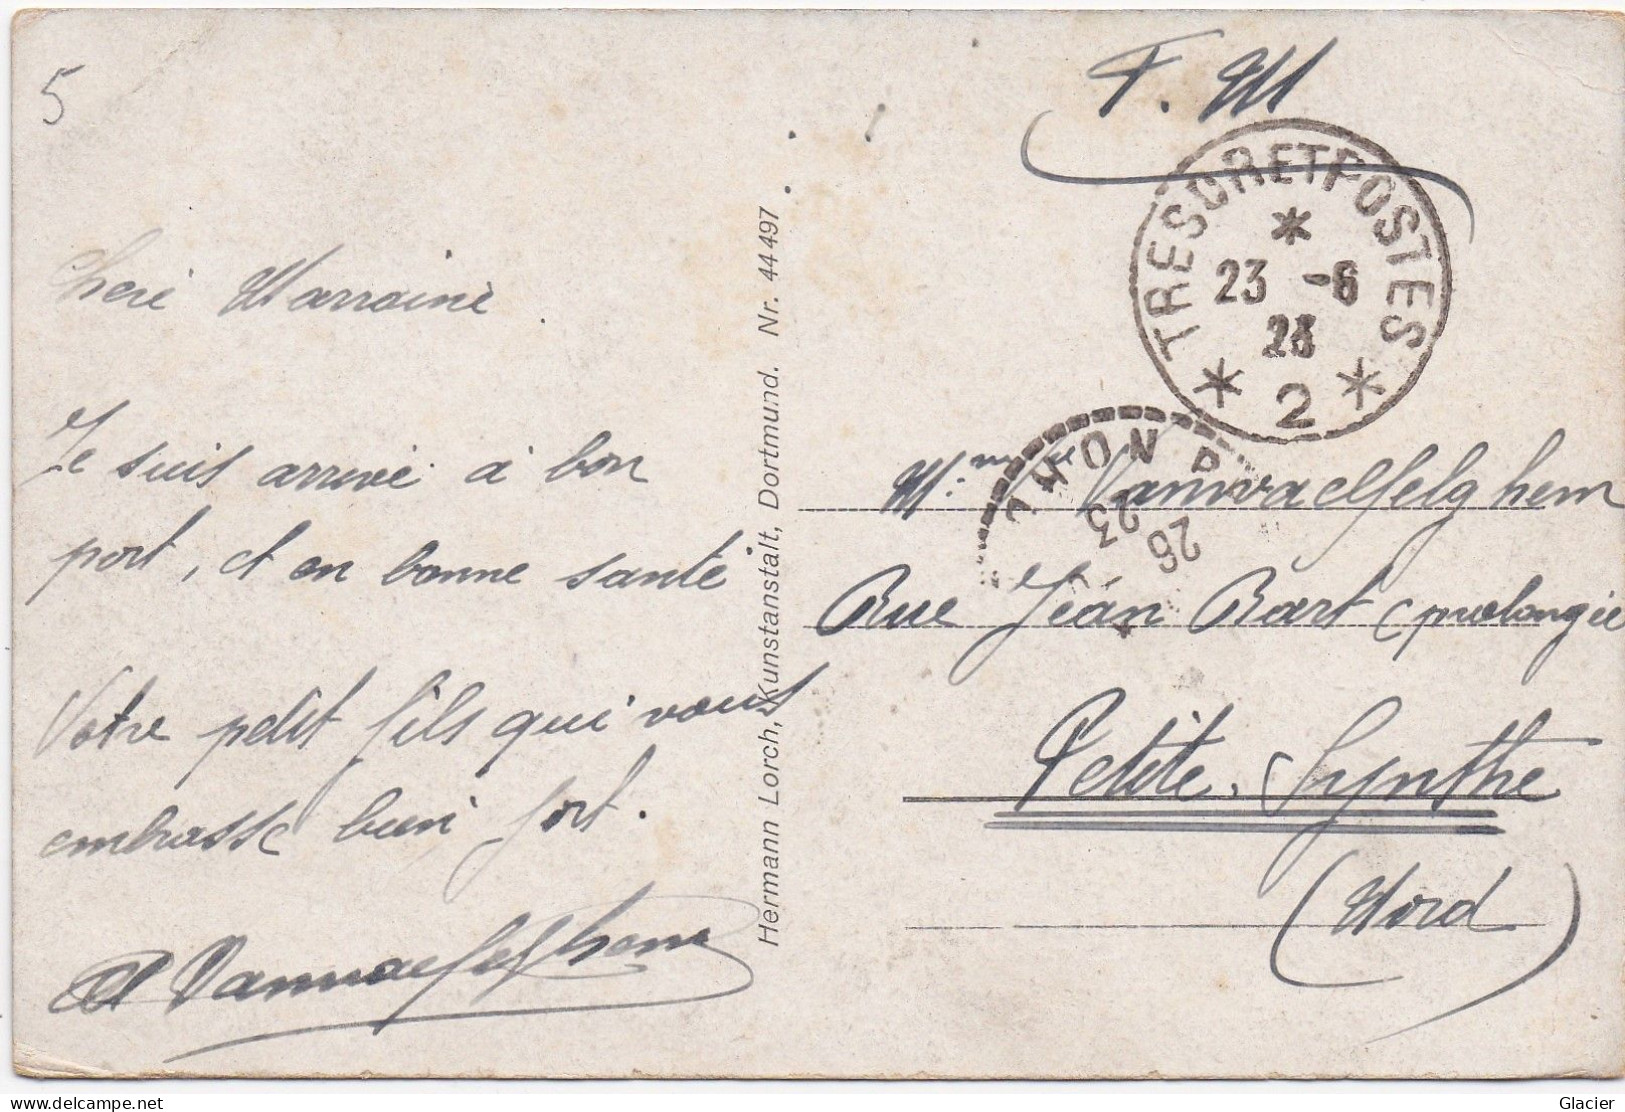 5
F. M
TRESOR ET POSTES
23 -6
23
* 2 *
26
23
Cheré Marraine
Je suis arrivé à bon
port, et en bonne santé
Votre petit fils qui vous
embrasse bien fort.
Vanwaelfelghem
Hermann Lorch, Kunstanstalt, Dortmund. Nr. 44 497
Mme Vanwaelfelghem
Rue Jean Bart (prolongée
Petite-Synthe
(Nord)
Glacier